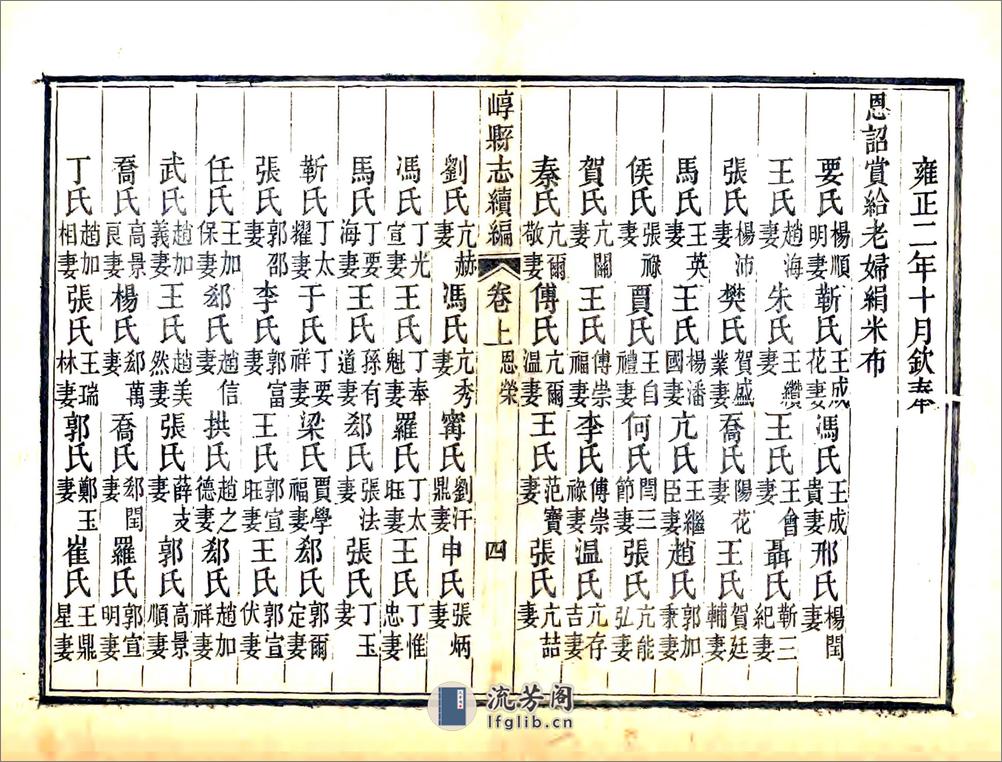 雍正二年十月欽奉
恩詔賞給老婦絹米布
要氏楊順明妻靳氏王成花妻馮氏王成貴妻邢氏楊閏妻
王氏趙海妻朱氏王纘妻王氏王會妻聶氏靳三紀妻
張氏楊沛妻樊氏賀盛業妻喬氏陽花妻王氏賀廷輔妻
馬氏王英妻王氏楊潘國妻亢氏王繼臣妻趙氏郭加秉妻
侯氏張祿妻賈氏王自禮妻何氏閆三節妻張氏亢能弘妻
賀氏亢關妻王氏傅崇福妻李氏傅崇祿妻溫氏亢存吉妻
秦氏亢爾敬妻傅氏亢爾溫妻王氏范寶妻張氏亢喆妻
崞縣志續編 卷上 恩榮 四
劉氏亢赫妻馮氏亢秀妻甯氏劉汗鼎妻申氏張炳妻
馮氏丁光宣妻王氏丁奉魁妻羅氏丁太眰妻王氏丁惟忠妻
馬氏丁要海妻王氏孫有道妻郄氏張法妻張氏丁玉妻
靳氏丁太耀妻于氏丁要祥妻梁氏賈學福妻郄氏郭爾定妻
張氏郭邵妻李氏郭富妻王氏郭宣眰妻王氏郭宣伏妻
任氏王加保妻郄氏趙信妻拱氏趙之德妻郄氏趙加祥妻
武氏趙加義妻王氏趙美然妻張氏薛支妻郭氏高景順妻
喬氏高景良妻楊氏郄萬妻喬氏郄閏妻羅氏郭宣明妻
丁氏趙加相妻張氏王瑞林妻郭氏鄭玉妻崔氏王鼎星妻
流芳阁
lfglib.cn